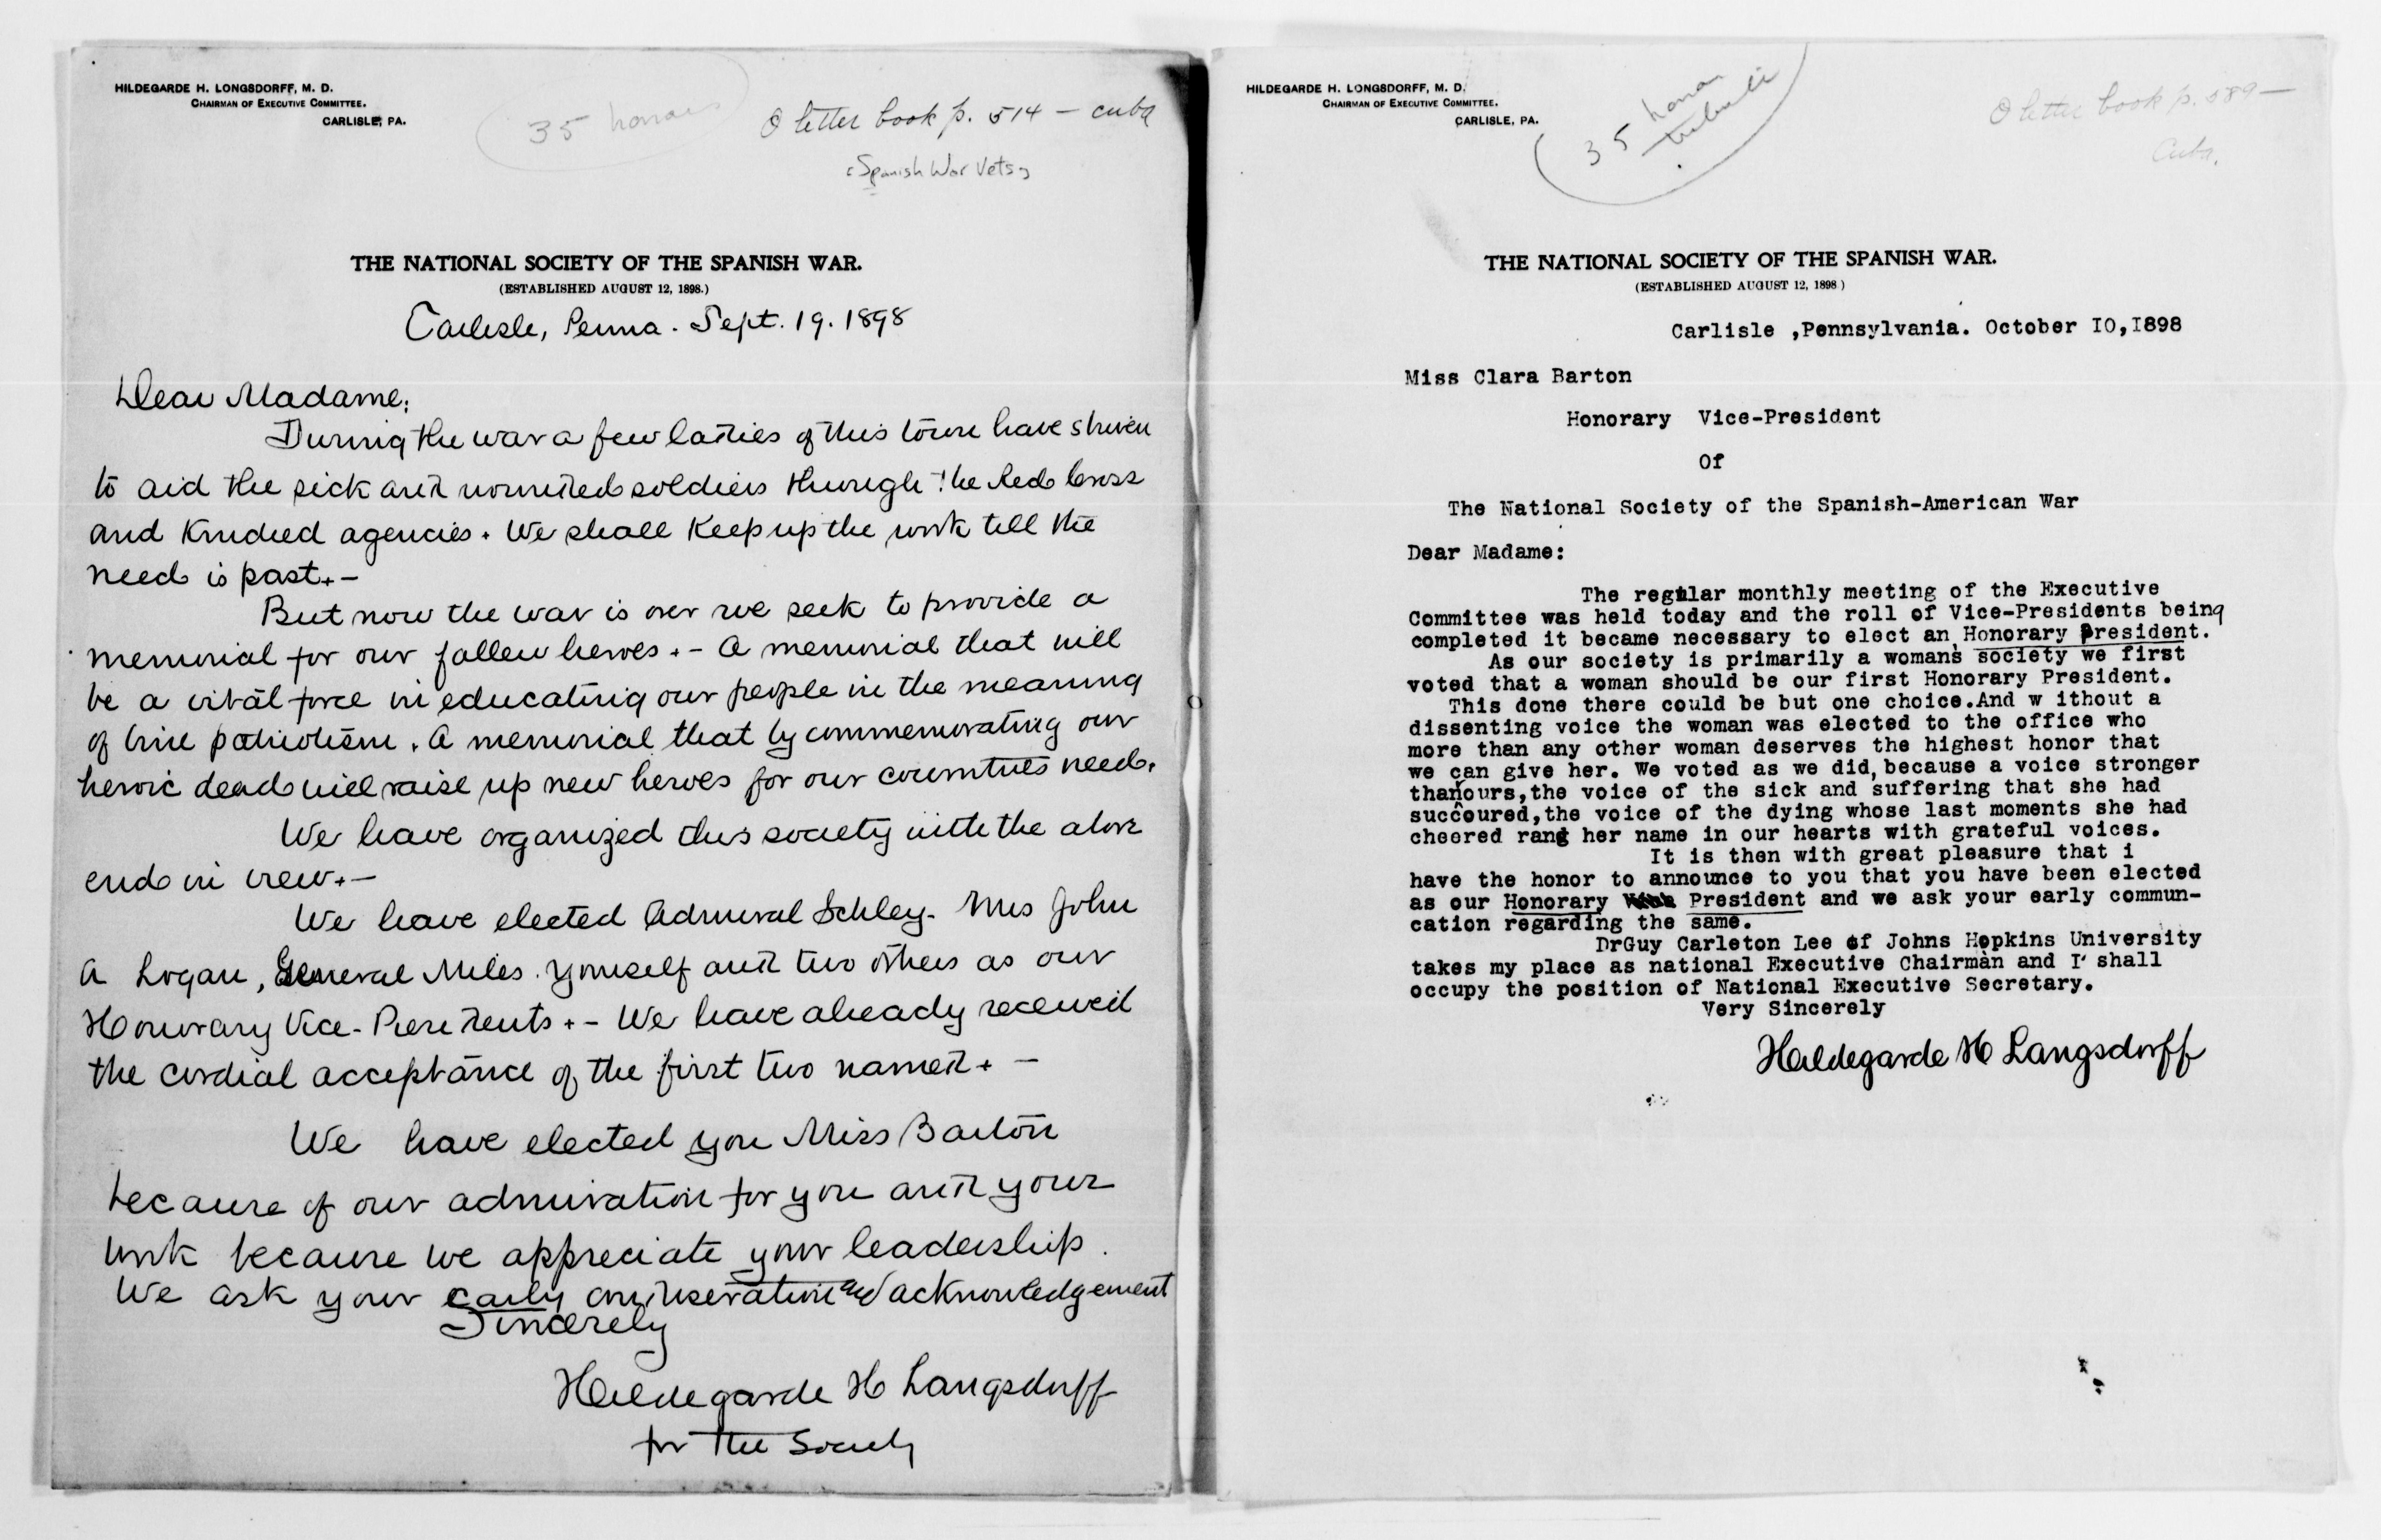 HILDEGARDE H. LONGSDORFF, M. D.
CHAIRMAN OF EXECUTIVE COMMITTEE.
CARLISLE, PA.
35 honor
O letter book p. 514 — cuba
[Spanish War Vets]
THE NATIONAL SOCIETY OF THE SPANISH WAR.
(ESTABLISHED AUGUST 12, 1898.)
Carlisle, Penna. Sept. 19. 1898
Dear Madame:
During the war a few ladies of this town have striven
to aid the sick and wounded soldiers through the Red Cross
and Kindred agencies. We shall Keep up the work till the
need is past. —
But now the war is over we seek to provide a
memorial for our fallen heroes. — A memorial that will
be a vital force in educating our people in the meaning
of true patriotism. A memorial that by commemorating our
heroic dead will raise up new heroes for our countries need.
We have organized this society with the above
end in view. —
We have elected Admiral Schley. Mrs John
A Logan, General Miles. yourself and two others as our
Honorary Vice-Presidents. — We have already received
the cordial acceptance of the first two named. —
We have elected you Miss Barton
because of our admiration for you and your
work because we appreciate your leadership.
We ask your early consideration and acknowledgement
Sincerely
Hildegarde H Langsdorff
for the Society
HILDEGARDE H. LONGSDORFF, M. D.
CHAIRMAN OF EXECUTIVE COMMITTEE.
CARLISLE, PA.
35 honor
tribute
O letter book p. 589 —
Cuba.
THE NATIONAL SOCIETY OF THE SPANISH WAR.
(ESTABLISHED AUGUST 12, 1898)
Carlisle ,Pennsylvania. October IO,I898
Miss Clara Barton
Honorary Vice-President
Of
The National Society of the Spanish-American War
Dear Madame:
The regular monthly meeting of the Executive
Committee was held today and the roll of Vice-Presidents being
completed it became necessary to elect an Honorary President.
As our society is primarily a woman's society we first
voted that a woman should be our first Honorary President.
This done there could be but one choice.And w ithout a
dissenting voice the woman was elected to the office who
more than any other woman deserves the highest honor that
we can give her. We voted as we did, because a voice stronger
than ours,the voice of the sick and suffering that she had
succoured,the voice of the dying whose last moments she had
cheered rang her name in our hearts with grateful voices.
It is then with great pleasure that i
have the honor to announce to you that you have been elected
as our Honorary President and we ask your early commun-
cation regarding the same.
DrGuy Carleton Lee of Johns Hopkins University
takes my place as national Executive Chairman and I shall
occupy the position of National Executive Secretary.
Very Sincerely
Hildegarde H Langsdorff